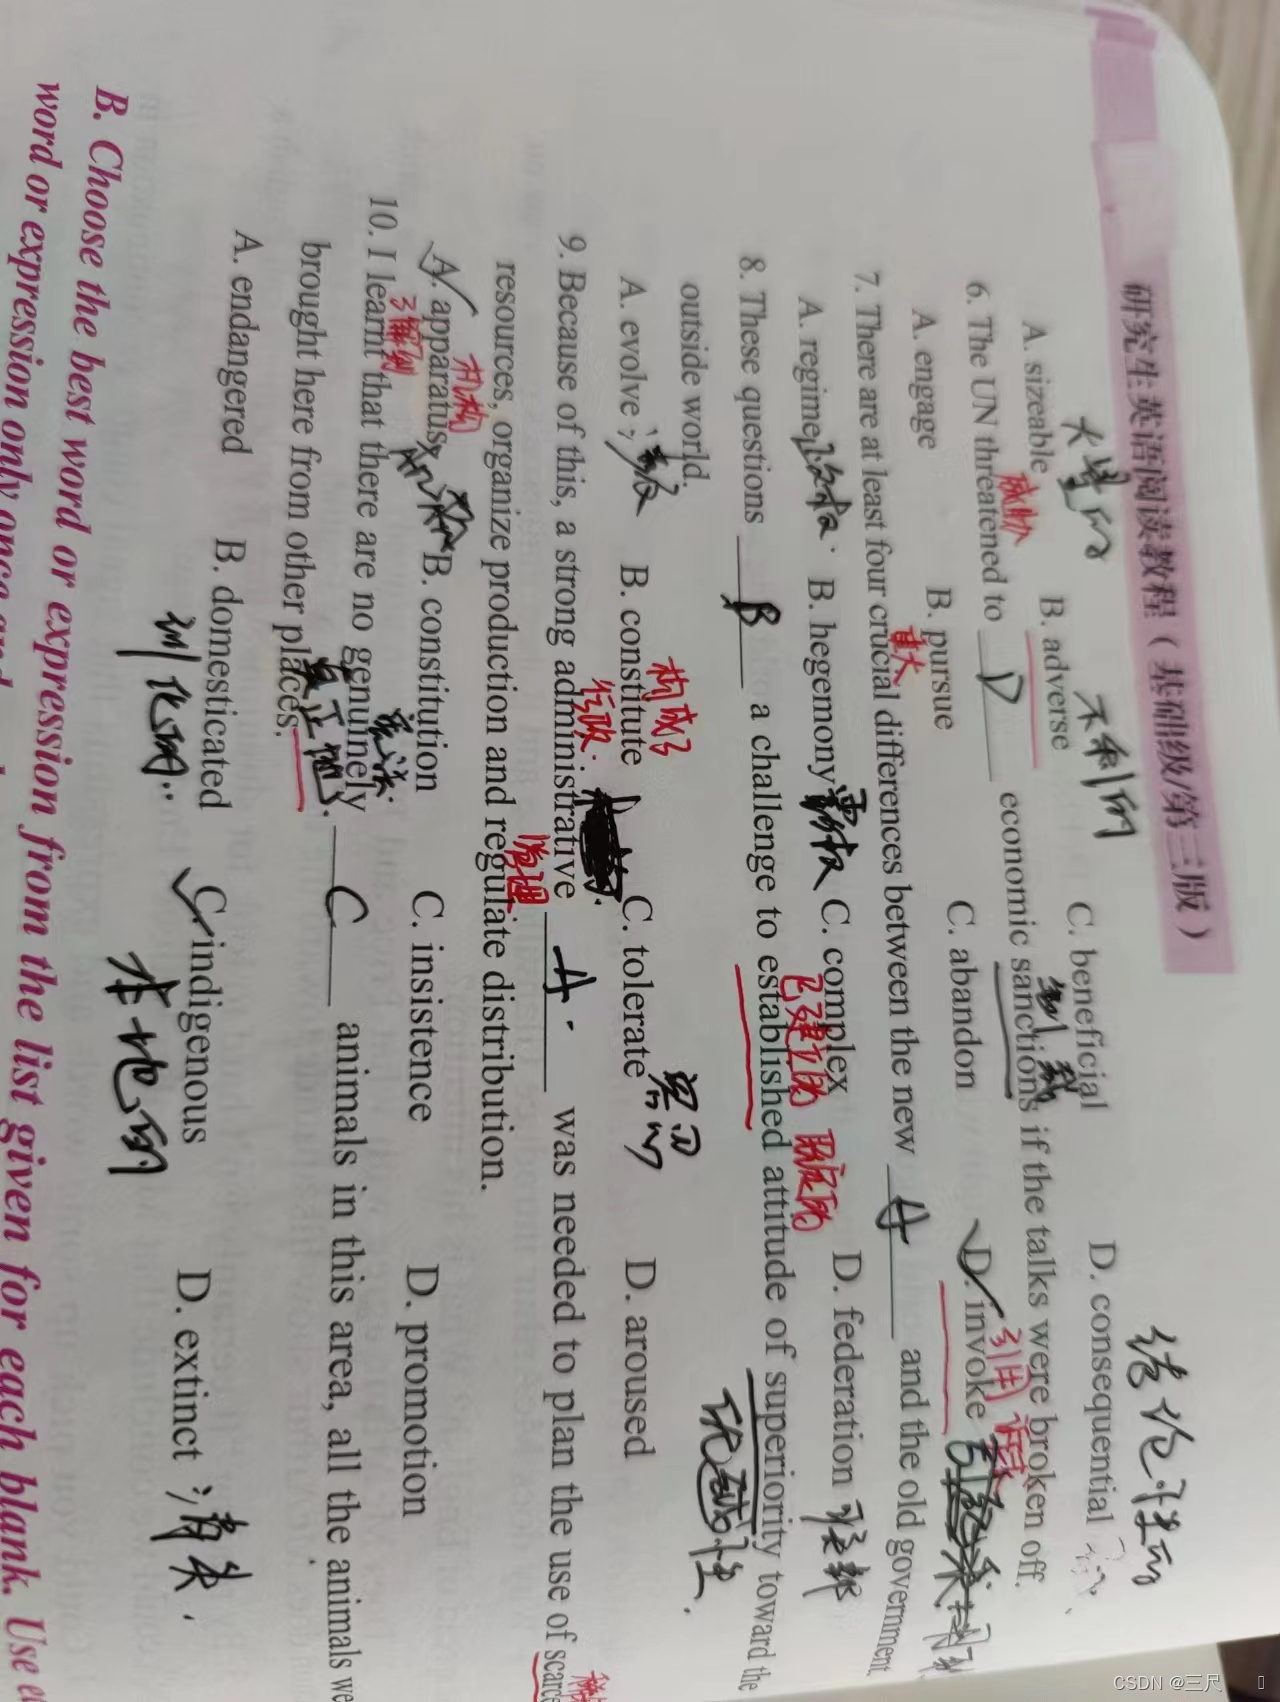 研究生英语阅读教程（基础级/第三版）
大量的 不利的 结论性的
A. sizeable B. adverse C. beneficial D. consequential
威胁 制裁
6. The UN threatened to D economic sanctions if the talks were broken off.
A. engage B. pursue C. abandon D. invoke 引用
重大
7. There are at least four crucial differences between the new A and the old government.
A. regime B. hegemony 霸权 C. complex D. federation 联邦
已建立的 既定的
8. These questions B a challenge to established attitude of superiority toward the
outside world. 优越性
构成
A. evolve 演变 B. constitute C. tolerate 容忍 D. aroused
行政
9. Because of this, a strong administrative A. was needed to plan the use of scarce
管理
resources, organize production and regulate distribution.
机构
A. apparatus B. constitution 宪法 C. insistence D. promotion
了解到
10. I learnt that there are no genuinely C animals in this area, all the animals we
真正地
brought here from other places.
A. endangered B. domesticated C. indigenous D. extinct 消失
驯化的 本地的
B. Choose the best word or expression from the list given for each blank. Use
word or expression only once and
CSDN @三尺